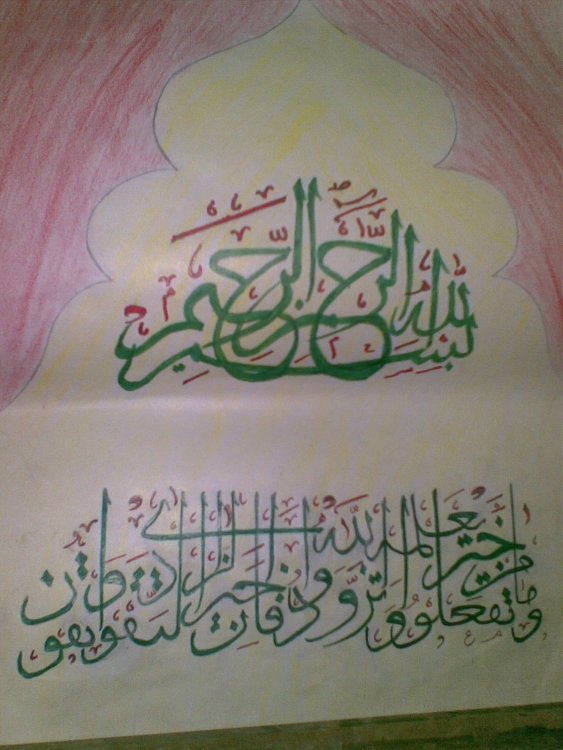 بسم الله الرحمن الرحيم
وما تفعلوا من خير يعلمه الله وتزودوا فإن خير الزاد التقوى واتقون